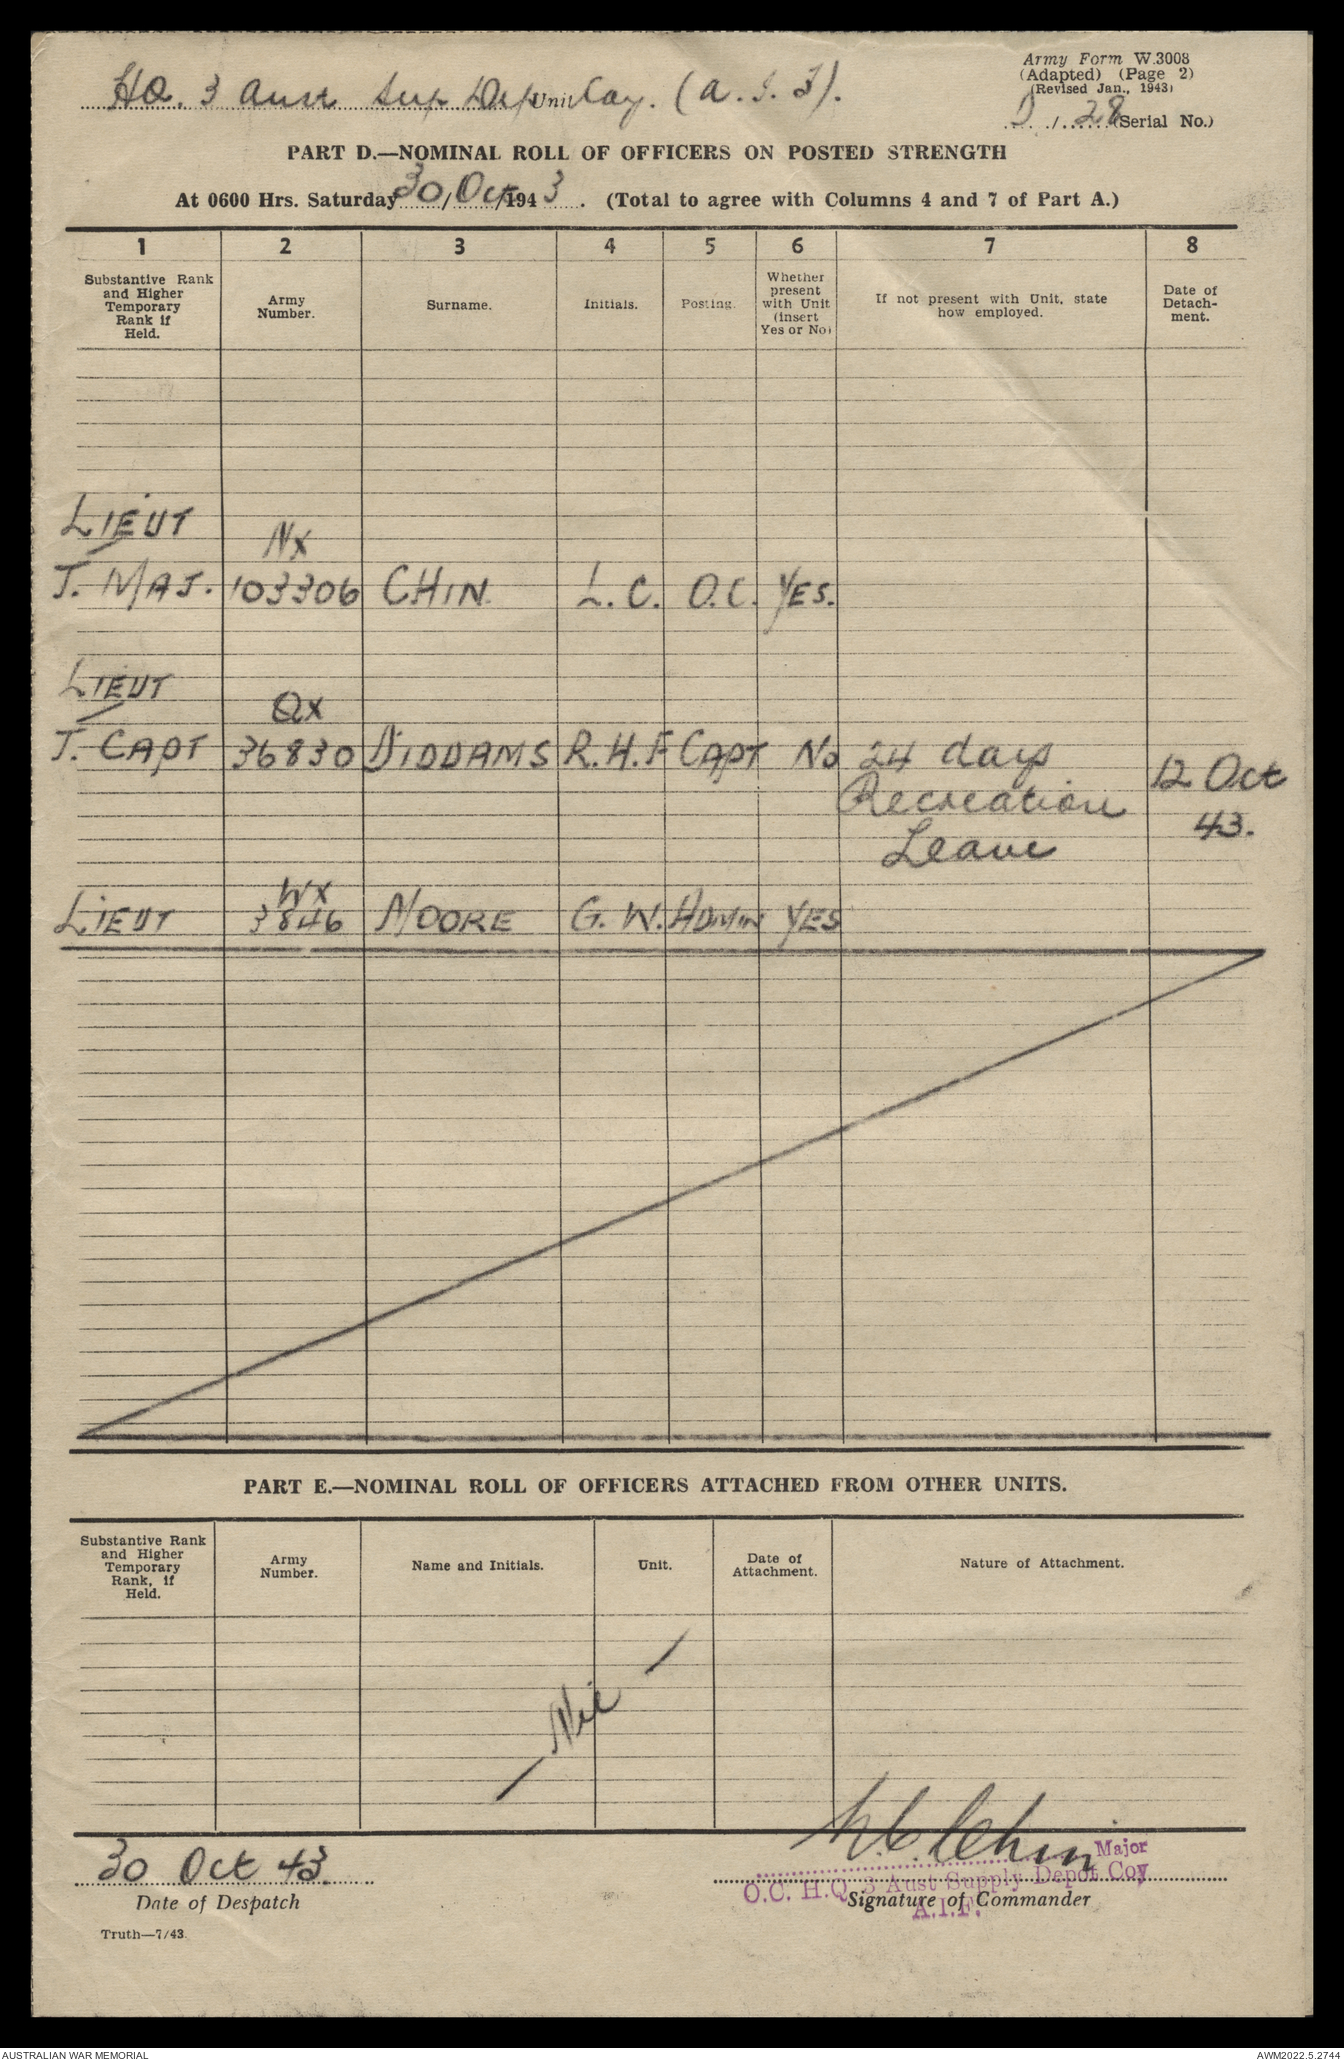 Army Form W.3008
(Adapted) (Page 2)
(Revised Jan., 1943)
HQ. 3 Aust Sup Dep Unit Coy. (A.I.F).
D / 28 (Serial No.)
PART D.—NOMINAL ROLL OF OFFICERS ON POSTED STRENGTH
At 0600 Hrs. Saturday 30/Oct/1943. (Total to agree with Columns 4 and 7 of Part A.)
1 2 3 4 5 6 7 8
Substantive Rank and Higher Temporary Rank if Held. Army Number. Surname. Initials. Posting. Whether present with Unit (insert Yes or No) If not present with Unit, state how employed. Date of Detach-ment.
LIEUT
NX
T. MAJ. 103306 CHIN. L. C. O.C. YES.
LIEUT
QX
T. CAPT 36830 DIDDAMS R.H.F CAPT No 24 days
Recreation 12 Oct
Leave 43.
WX
LIEUT 3846 MOORE G. W. ADMIN YES
PART E.—NOMINAL ROLL OF OFFICERS ATTACHED FROM OTHER UNITS.
Substantive Rank and Higher Temporary Rank, if Held. Army Number. Name and Initials. Unit. Date of Attachment. Nature of Attachment.
— Nil —
30 Oct 43.
Date of Despatch
L.C. Chin
Major
O.C. H.Q. 3 Aust Supply Depot Coy
Signature of Commander
A.I.F.
Truth—7/43.
AUSTRALIAN WAR MEMORIAL
AWM2022.5.2744